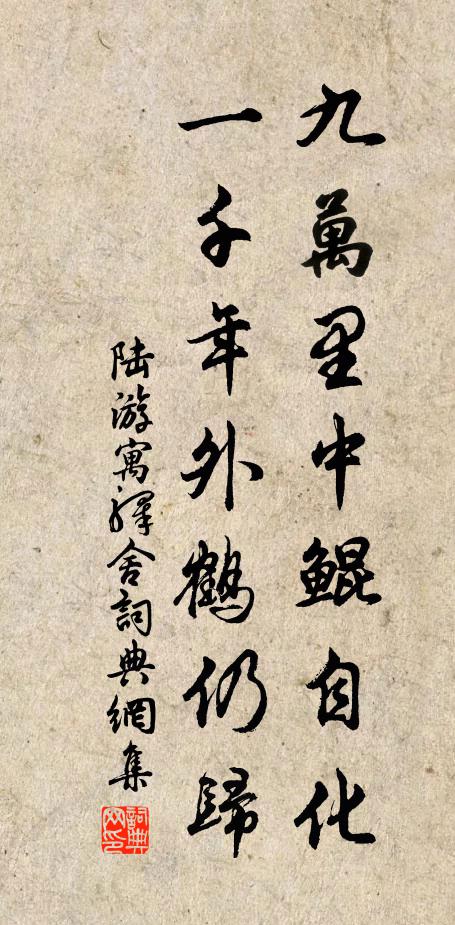 九萬里中鯤自化
一千年外鶴仍歸
陆游寓驛舍詞典網集
詞典网印